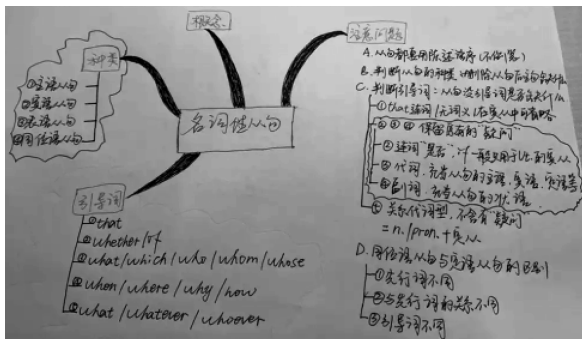 概念
种类
①主语从句
②宾语从句
③表语从句
④同位语从句
名词性从句
引导词
①that
②whether/if
③what/which/who/whom/whose
④when/where/why/how
⑤what/whatever/whoever
注意问题
A.从句都要用陈述语序(不倒装)
B.判断从句的种类:删除从句后主句缺什么
C.判断引导词:从句没引导词是否缺什么
①that连词/无词义/在宾从中可省略
②③④保留原有的"疑问"
②连词"是否",if一般只用于vt.的宾从
③代词,充当从句的主语、宾语、表语等
④副词,充当从句的状语
⑤关系代词型,不含有"疑问"
=n./pron.+定从
D.同位语从句与定语从句的区别
①先行词不同
②与先行词的关系不同
③引导词不同